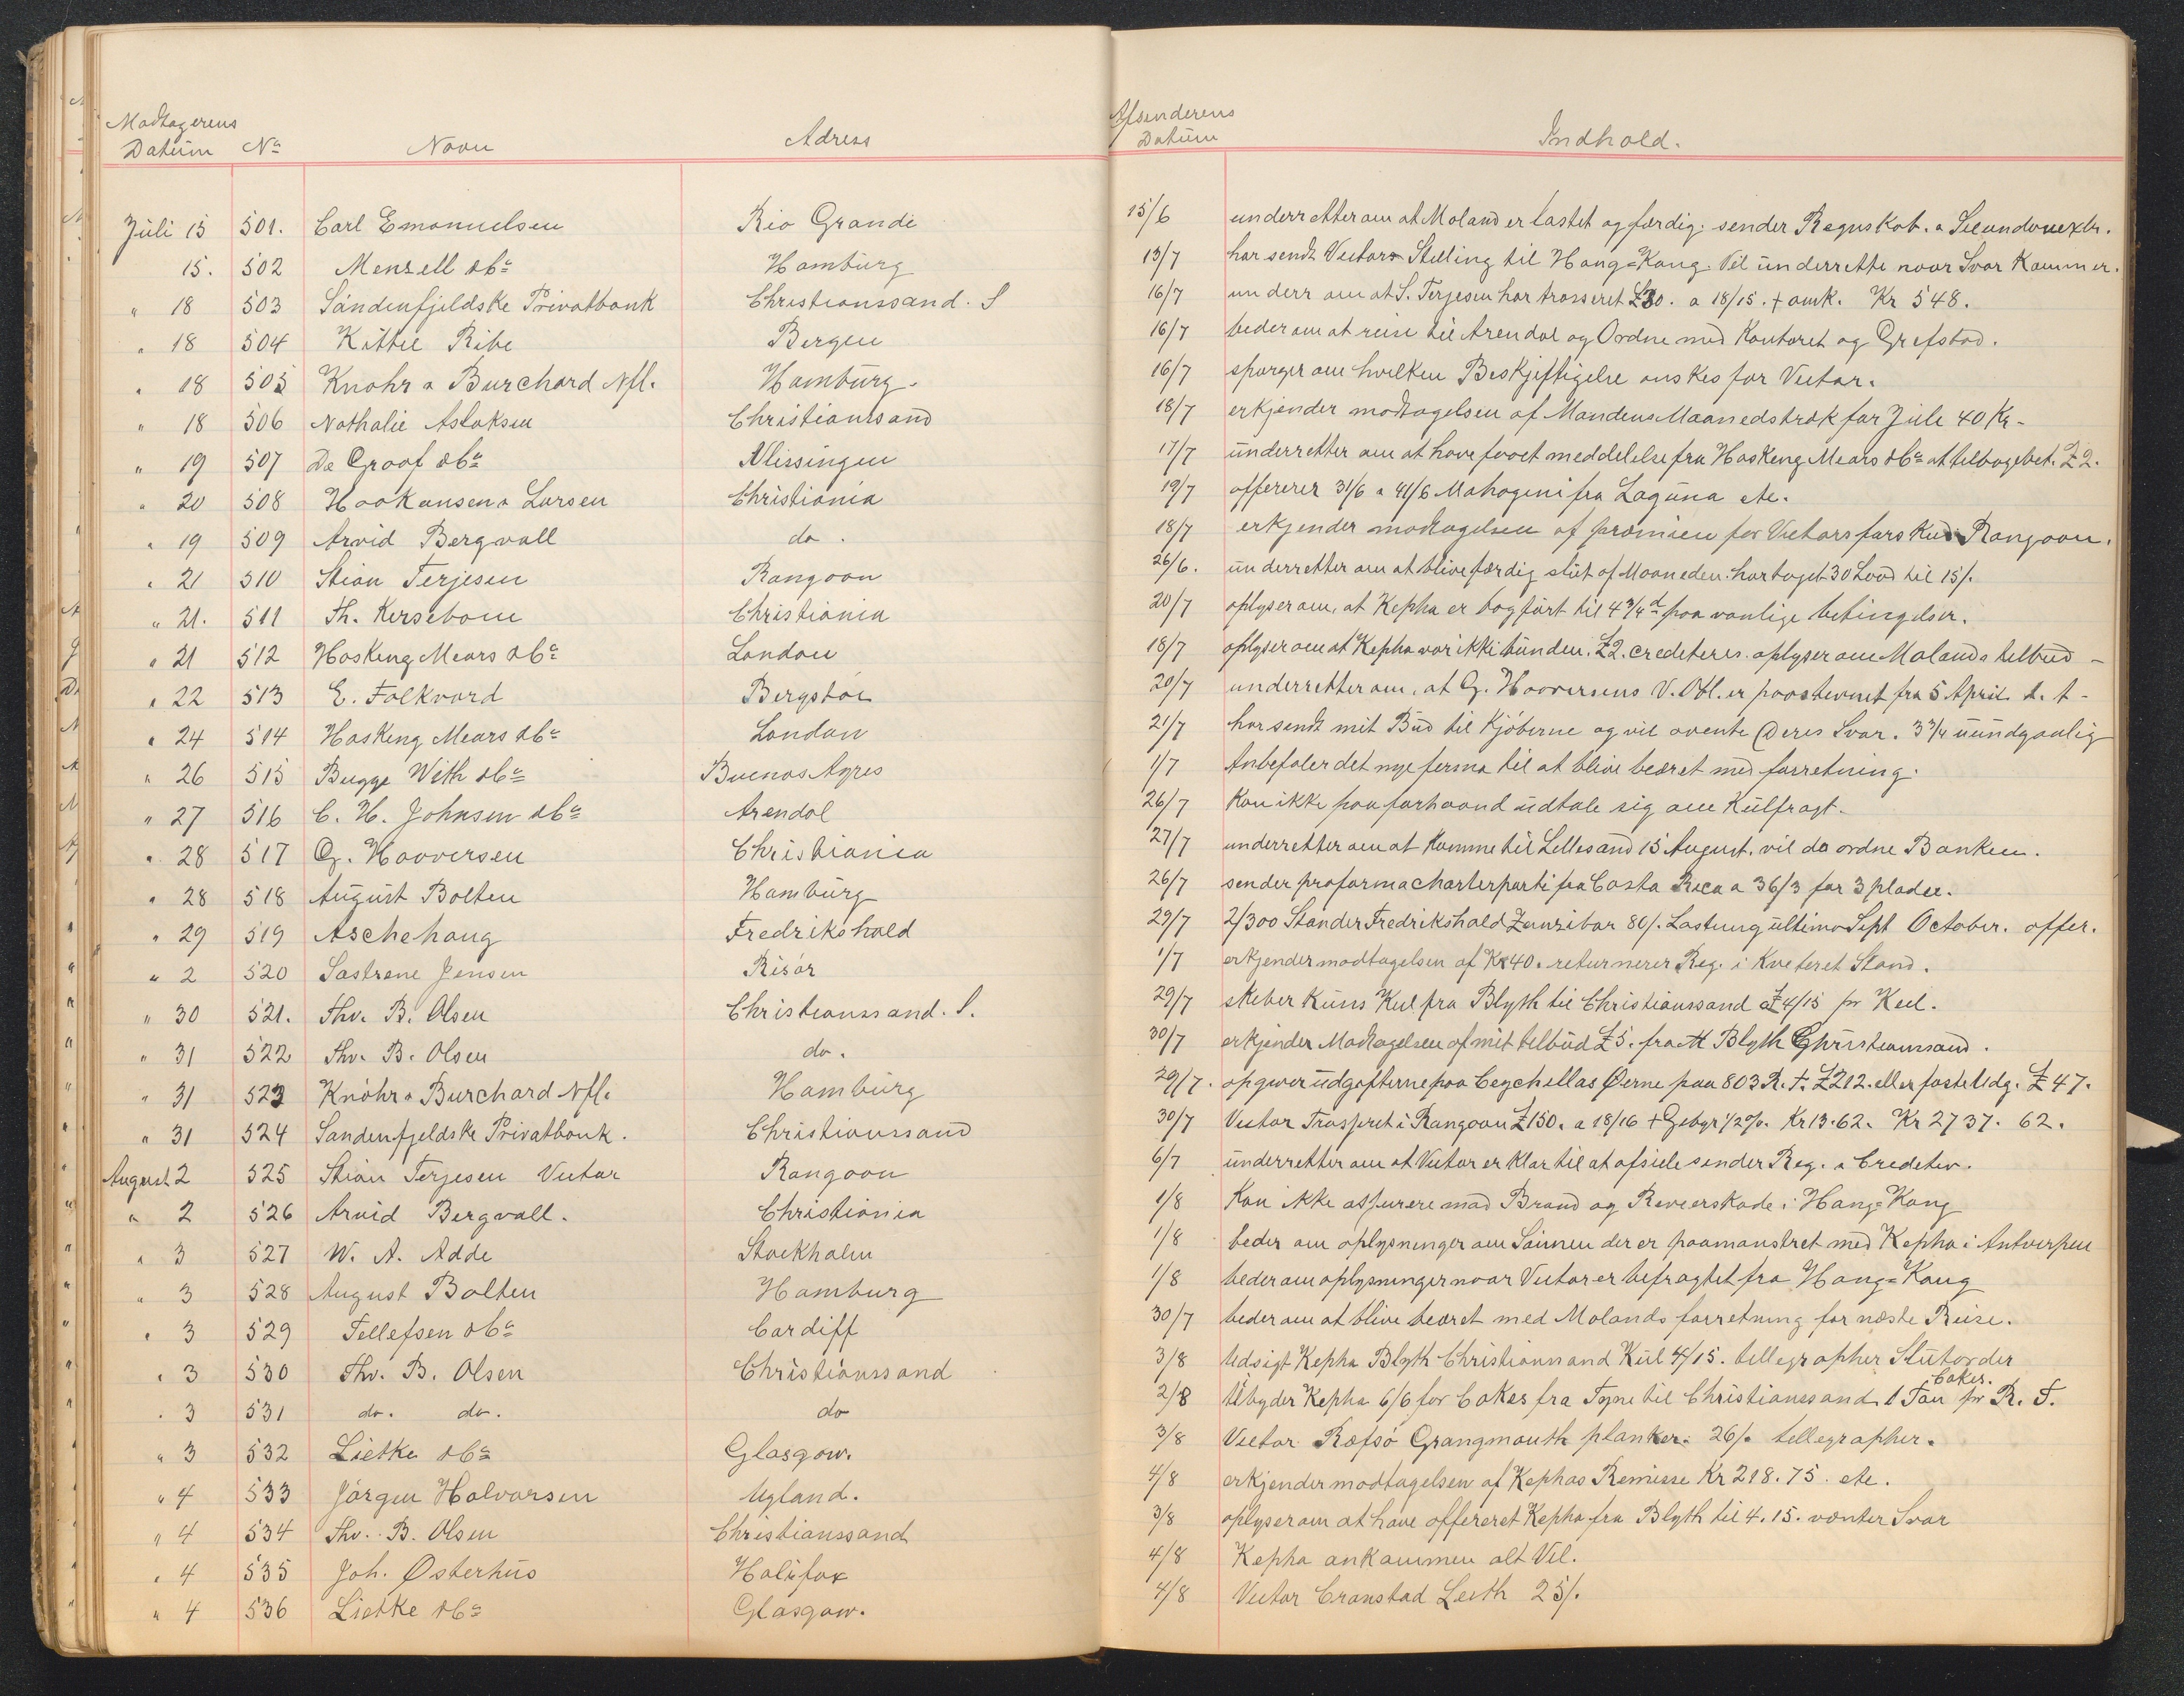 Modtagerens Afsenderens
Datum No Navn Adress Datum Indhold.
Juli 15 501. Carl Emanuelsen Rio Grande 15/6 underretter om at Moland er lastet og færdig. sender Regnskab. & Secundavexler.
15. 502 Menzell & Co Hamburg 13/7 har sendt Victors Stilling til Hong=Kong. Vil underrette naar Svar Kommer.
" 18 503 Søndenfjeldske Privatbank Christianssand. S 16/7 underr om at S. Terjesen har trasseret £30. a 18/15. + omk. Kr 548.
" 18 504 Kittie Ribe Bergen 16/7 beder om at reise til Arendal og Ordne med Kontoret og Grefstad.
" 18 505 Knöhr & Burchard Nfl. Hamburg. 16/7 spørger om hvilken Beskjeftigelse ønskes for Victor.
" 18 506 Nathalie Aslaksen Christianssand 18/7 erkjender modtagelsen af Mandens Maanedstræk for Juli 40 Kr-
" 19 507 De Groof & Co Vlissingen 17/7 underretter om at have faaet meddelelse fra Hosking Mears & Co at tilbagebet. £2.
" 20 508 Haakansen & Larsen Christiania 19/7 offererer 31/6 a 41/6 Mahogeni fra Laguna etc.
" 19 509 Arvid Bergvall do. 18/7 erkjender modtagelsen af præmien for Victors forskud Rangoon.
" 21 510 Stian Terjesen Rangoon 26/6. underretter om at blive færdig slut af Maaneden. har taget 30 Lood til 15/.
" 21. 511 Th. Kersebom Christiania 20/7 oplyser om, at Kepha er bogført til 4 3/4 d paa vanlige betingelser.
" 21 512 Hosking Mears & Co London 18/7 oplyser om at Kepha var ikke bunden. £2. crediteres. oplyser om Molands tilbud -
" 22 513 E. Falkvard Bergstøl 20/7 underretter om, at G. Haaversens V. Obl. er paastevnet fra 5 April d. t -
" 24 514 Hosking Mears & Co London 21/7 har sendt mit Bud til Kjøberne og vil avente Deres Svar. 3 3/4 uundgaalig
" 26 515 Bugge With & Co Buenos Ayres 1/7 Anbefaler det nye ferma til at blive beæret med forretning.
" 27 516 C. H. Johnsen & Co Arendal 26/7 Kan ikke paa forhaand udtale sig om Kulfragt.
" 28 517 G. Haaversen Christiania 27/7 underretter om at Komme til Lillesand 15 August. vil da ordne Banken.
" 28 518 August Bolten Hamburg 26/7 sender proforma charterparti fra Costa Rica a 36/3 for 3 pladse.
" 29 519 Aschehoug Fredrikshald 29/7 2/300 Stander Fredrikshald Zanzibar 80/. Lastning ultimo Sept October. offer.
" 2 520 Søstrene Jensen Risør 1/7 erkjender modtagelsen af Kr 40. returnerer Reg. i Kviteret Stand.
" 30 521. Thv. B. Olsen Christianssand. S. 29/7 skeber Kuns Kul fra Blyth til Christianssand a £4/15 pr Keel.
" 31 522 Thv. B. Olsen do. 30/7 erkjender Modtagelsen af mit tilbud £5. fra Blyth Christianssand.
" 31 523 Knöhr & Burchard Nfl. Hamburg 29/7. opgiver udgifterne paa Ceychellas Øerne paa 803 R. T. £212. eller faste Udg. £47.
" 31 524 Søndenfjeldske Privatbank. Christianssand 30/7 Victor Trasseret i Rangoon £150. a 18/16 + Gebyr 1/2 %. Kr 13.62. Kr 2737. 62.
August 2 525 Stian Terjesen Victor Rangoon 6/7 underretter om at Victor er klar til at afseile sender Reg. & Creditiv.
" 2 526 Arvid Bergvall. Christiania 1/8 Kan ikke assurere mod Brand og Reveerskade i Hong=Kong
" 3 527 W. A. Adde Stockholm 1/8 beder om oplysninger om Sønnen der er paamønstret med Kepha i Antverpen
" 3 528 August Bolten Hamburg 1/8 beder om oplysninger naar Victor er befragtet fra Hong=Kong
" 3 529 Tellefsen & Co Cardiff 30/7 beder om at blive beæret med Molands forretning for næste Reise.
" 3 530 Thv. B. Olsen Christianssand 3/8 Udsigt Kepha Blyth Christianssand Kul 4/15. tellegrapher Slutorder
" 3 531 do. do. do 2/8 Udbyder Kepha 6/6 for Cokes fra Tyne til Christianssand 1 Ton Cokes. pr R. T.
" 3 532 Lietke & Co Glasgow. 3/8 Victor Ræfsø Grangmouth planker. 26/. tellegrapher.
" 4 533 Jørgen Halvorsen Ugland. 4/8 erkjender modtagelsen af Kephas Remisse Kr 218.75. etc.
" 4 534 Thv. B. Olsen Christianssand 3/8 oplyser om at have offereret Kepha fra Blyth til 4.15. venter Svar
" 4 535 Joh. Østerhus Halifax 4/8 Kepha ankommen alt Vel.
" 4 536 Lietke & Co Glasgow. 4/8 Victor Cronstad Leith 25/.